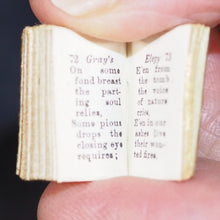 72 Gray's
On some
fond breast
the part-
ing soul
relies,
Some pious
drops the
closing eye
requires;
Elegy 73
E'en from
the tomb
the voice
of nature
cries,
E'en in our
ashes live
their won-
ted fires.